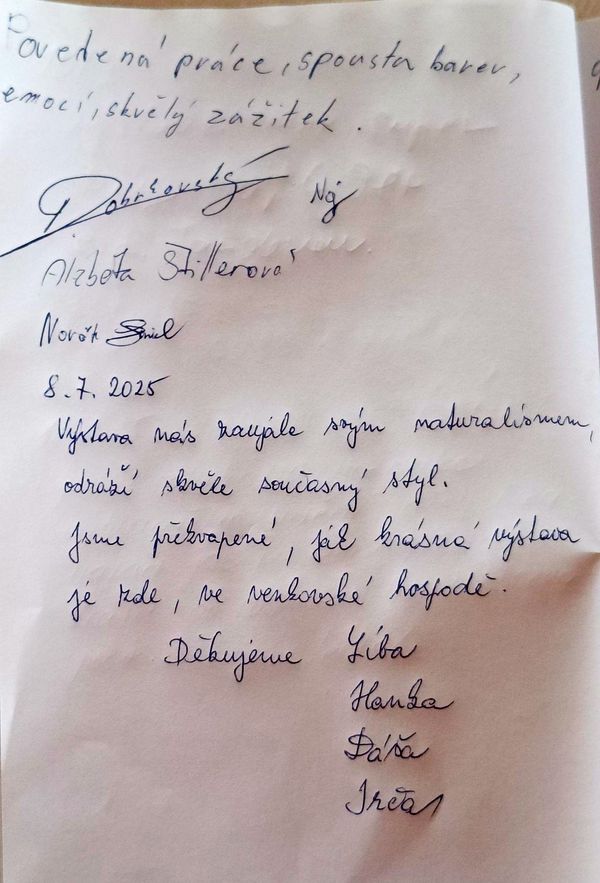 Povedená práce, spousta barev,
emocí, skvělý zážitek.
Alžběta Stillerová
Novák
8. 7. 2025
Výstava nás zaujále svým naturalismem,
odráží skvěle současný styl.
Jsme překvapené, ják krásná výstava
jé zde, ve venkovské hospodě.
Děkujeme Líba
Hanka
Dáša
Irča